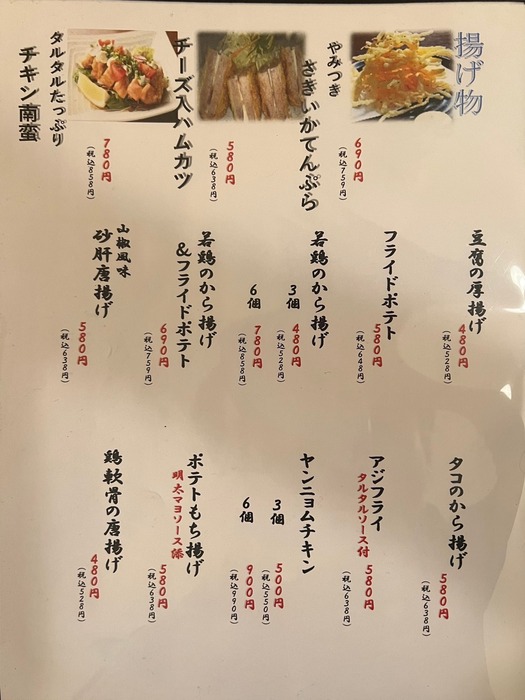 揚げ物
やみつき
さきいかてんぷら
690円
(税込759円)
チーズ入ハムカツ
580円
(税込638円)
タルタルたっぷり
チキン南蛮
780円
(税込858円)
豆腐の厚揚げ
480円
(税込528円)
フライドポテト
580円
(税込648円)
若鶏のから揚げ
3個
480円
(税込528円)
6個
780円
(税込858円)
若鶏のから揚げ
&フライドポテト
690円
(税込759円)
山椒風味
砂肝唐揚げ
580円
(税込638円)
タコのから揚げ
580円
(税込638円)
アジフライ
タルタルソース付
580円
(税込638円)
ヤンニョムチキン
3個
500円
(税込550円)
6個
900円
(税込990円)
ポテトもち揚げ
明太マヨソース添
580円
(税込638円)
鶏軟骨の唐揚げ
480円
(税込528円)